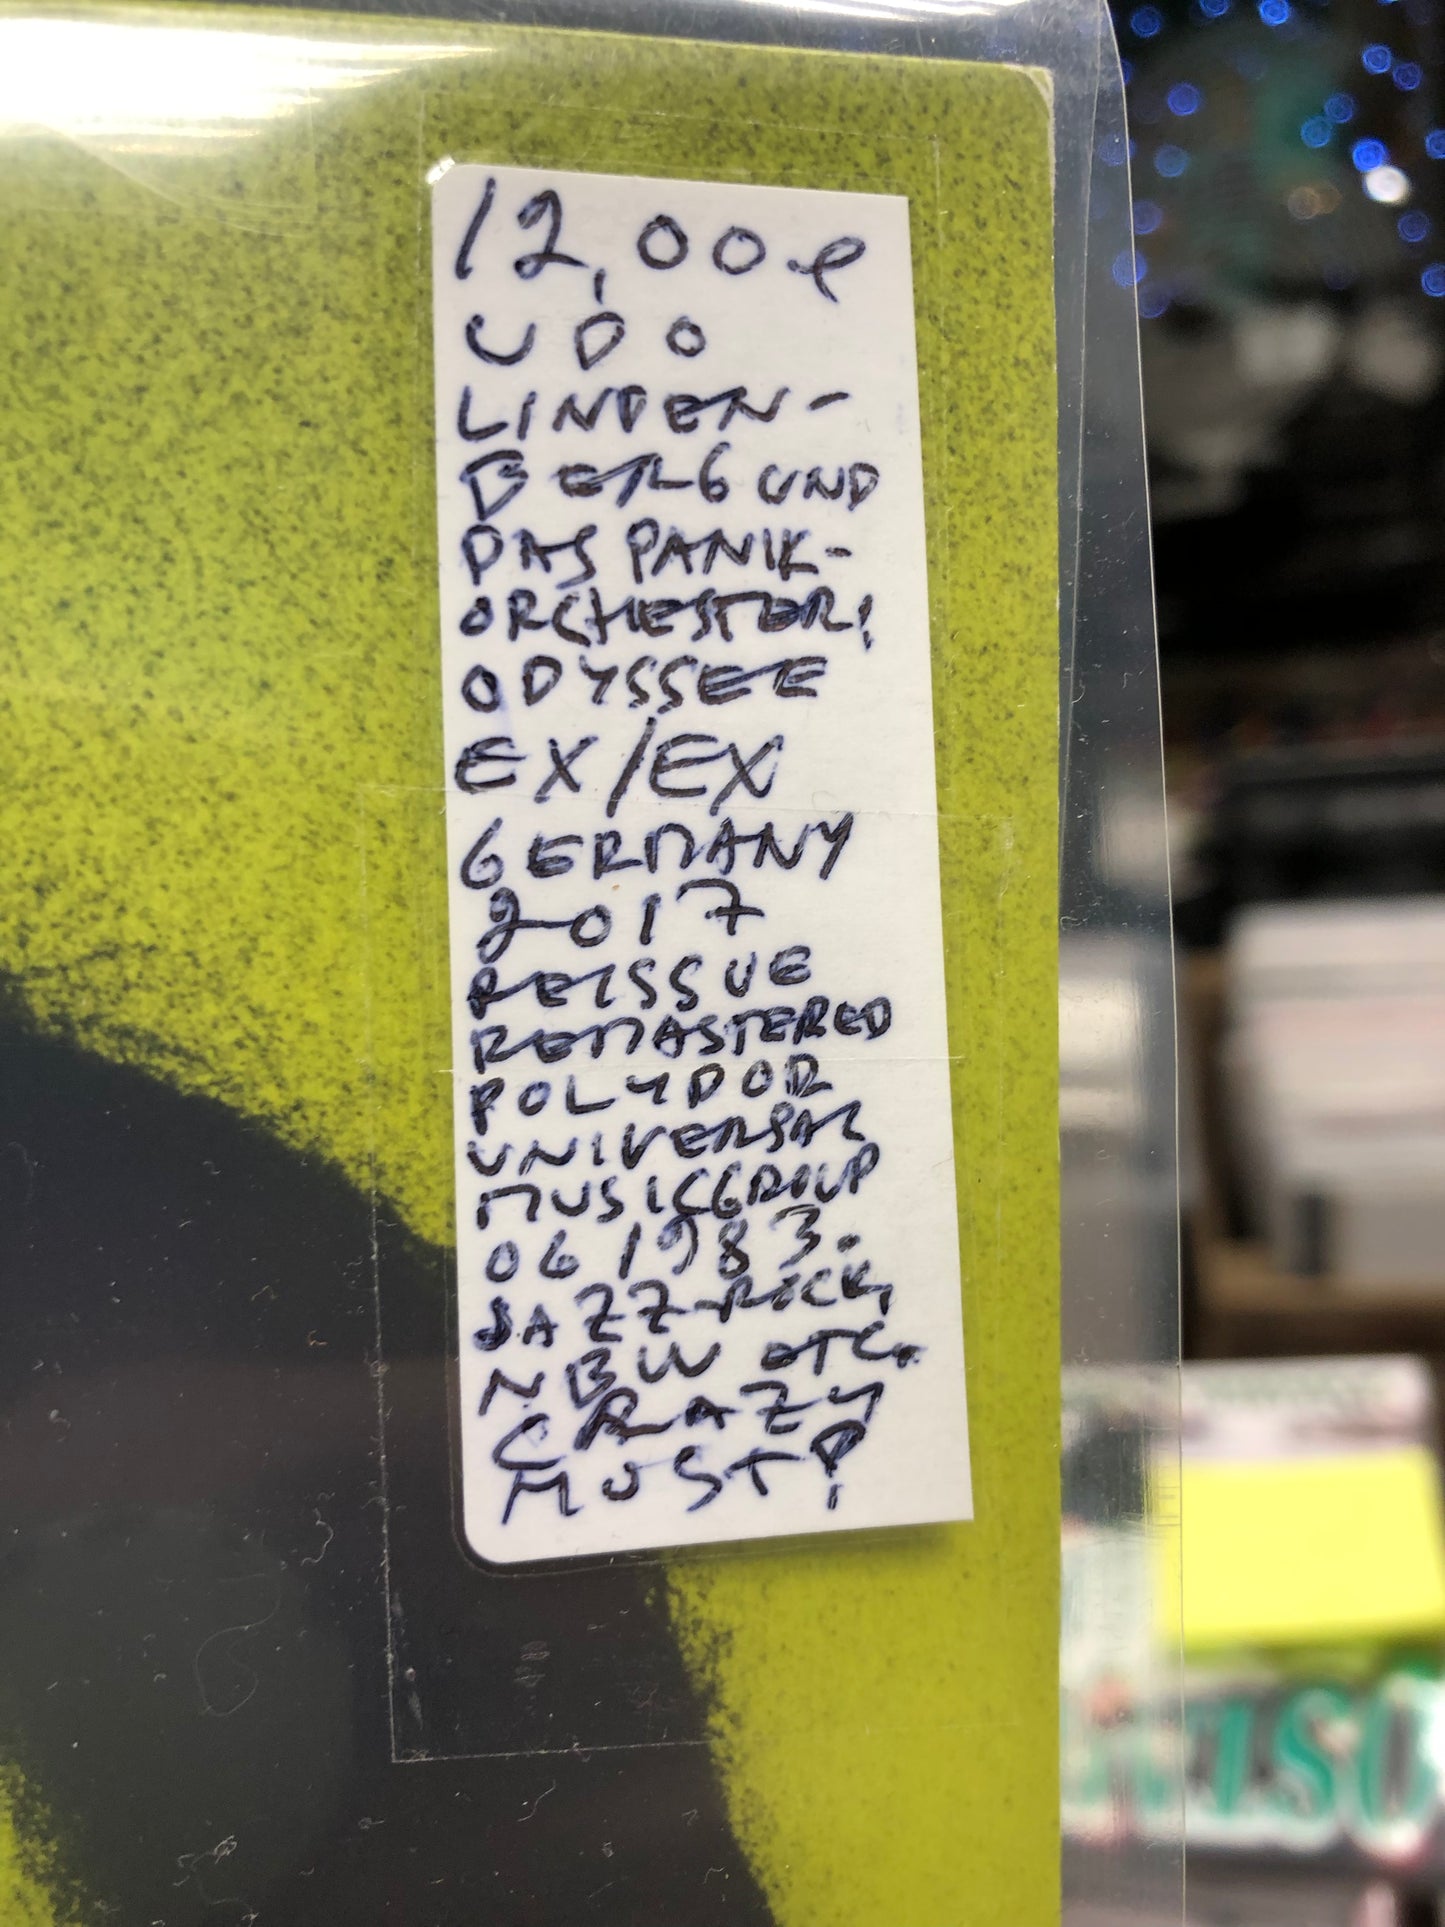 12,00 e
UDO
LINDEN-
BERG UND
DAS PANIK-
ORCHESTER:
ODYSSEE
EX/EX
GERMANY
2017
REISSUE
REMASTERED
POLYDOR
UNIVERSAL
MUSICGROUP
OG 1983.
JAZZ-ROCK,
NDW ETC.
CRAZY
MUST!